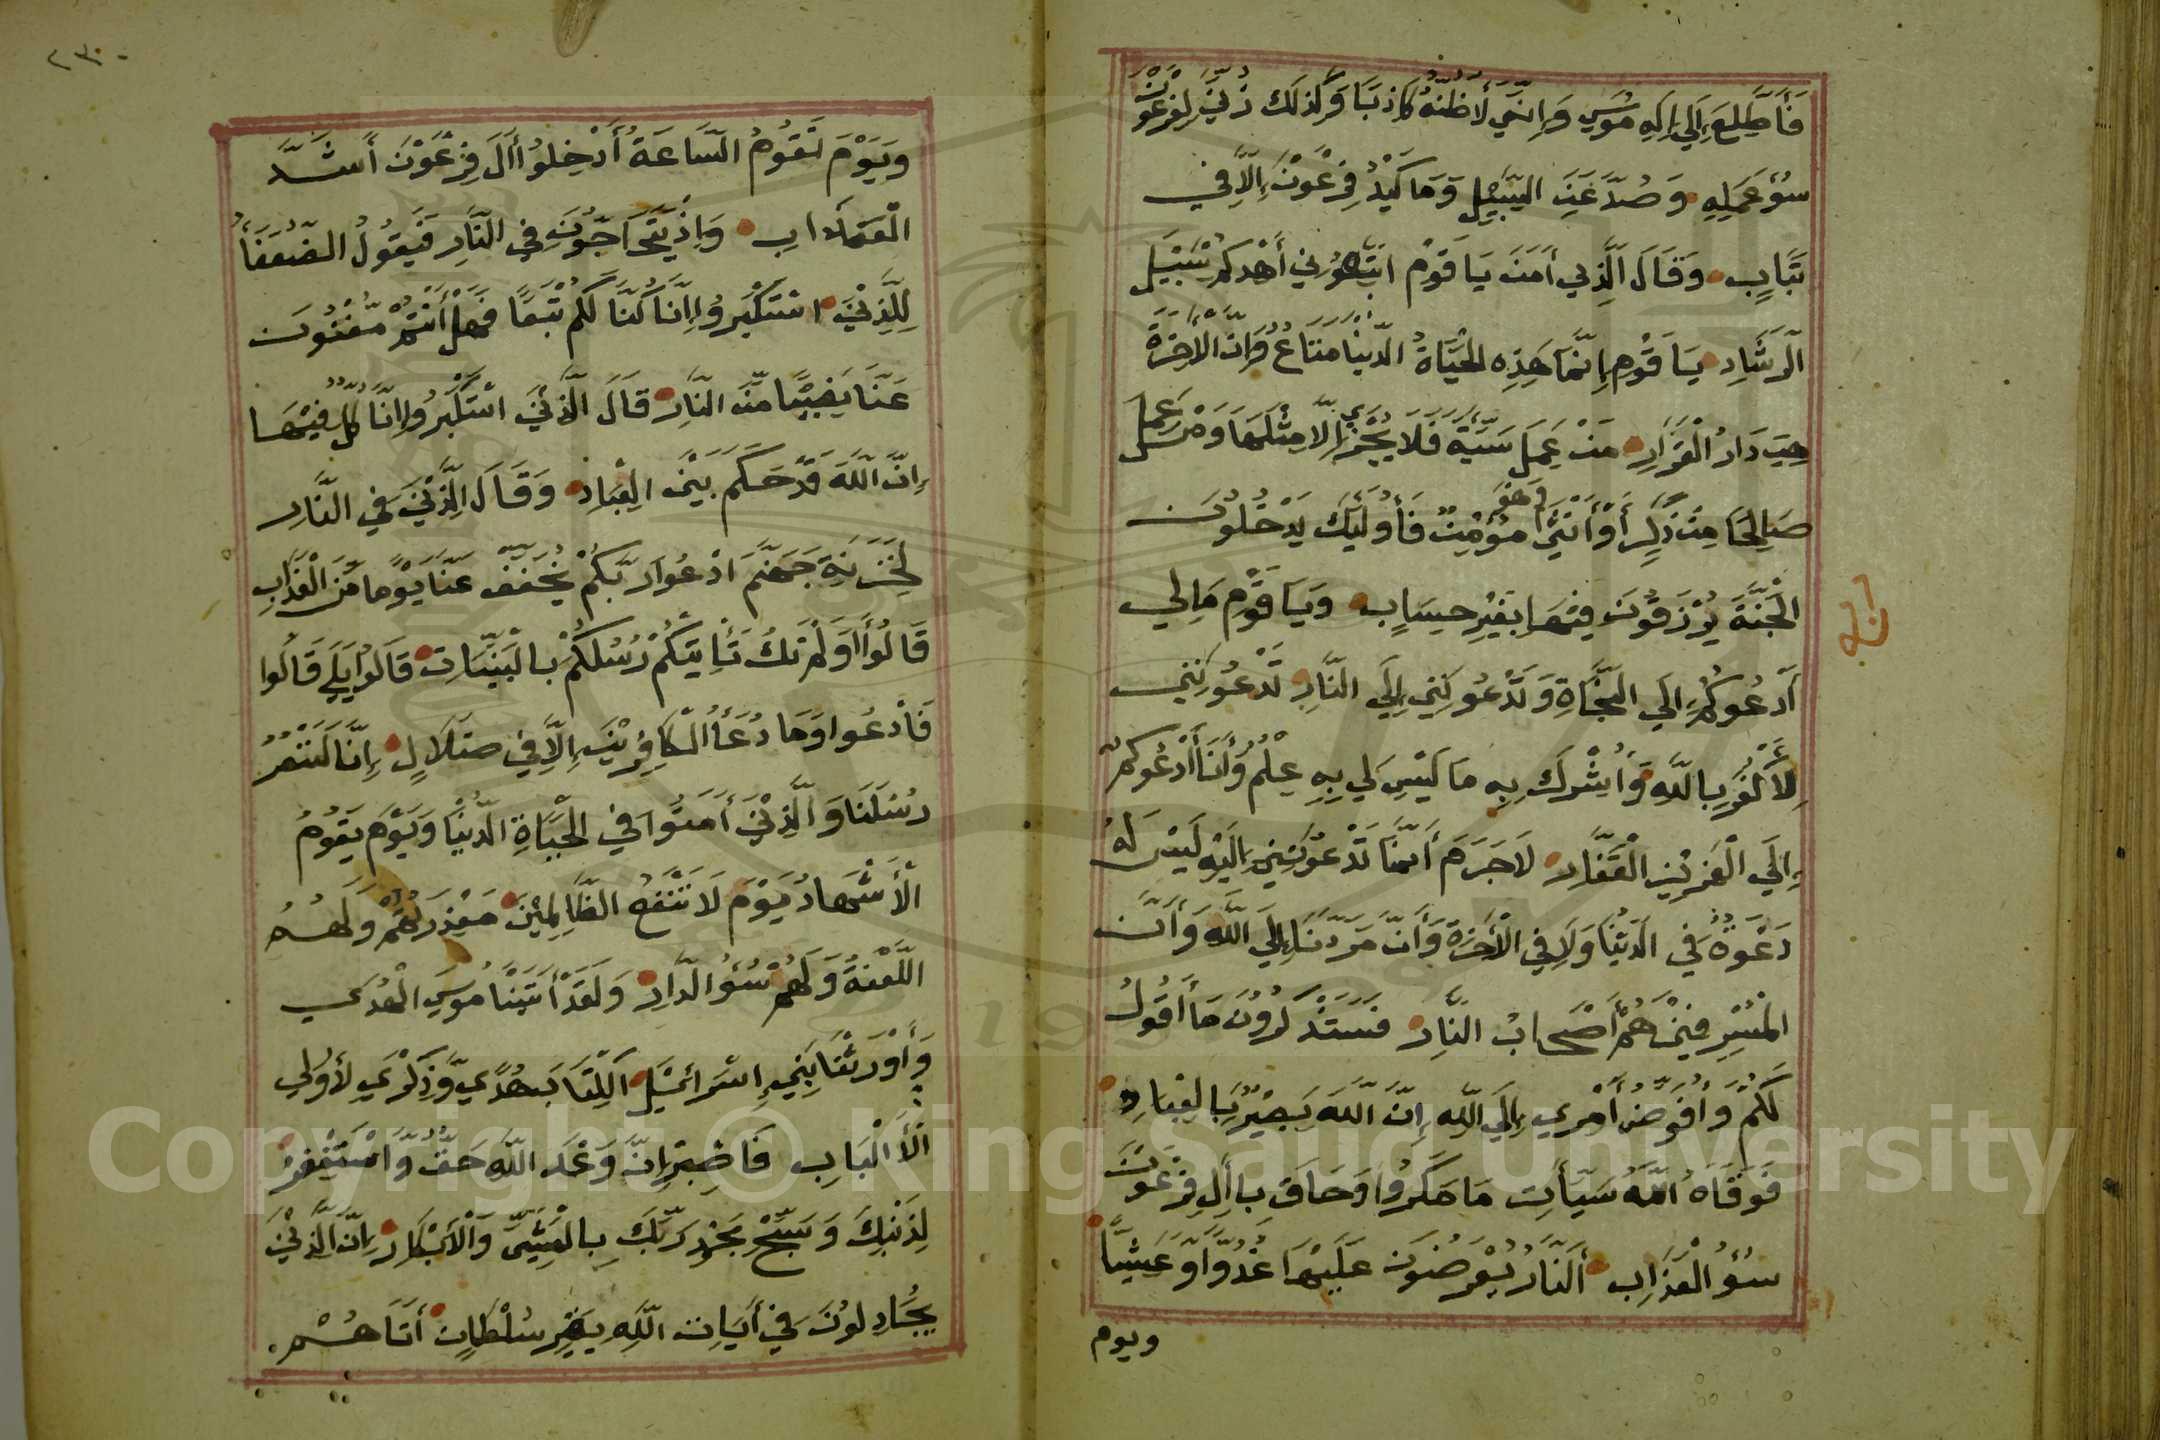 فَأَطَّلِعَ إِلَى إِلَهِ مُوسَى وَإِنِّي لَأَظُنُّهُ كَاذِبًا وَكَذَلِكَ زُيِّنَ لِفِرْعَوْنَ
سُوءُ عَمَلِهِ وَصُدَّ عَنِ السَّبِيلِ وَمَا كَيْدُ فِرْعَوْنَ إِلَّا فِي
تَبَابٍ وَقَالَ الَّذِي أَمَنَ يَا قَوْمِ اتَّبِعُونِي أَهْدِكُمْ سَبِيلَ
الرَّشَادِ يَا قَوْمِ إِنَّمَا هَذِهِ الْحَيَاةُ الدُّنْيَا مَتَاعٌ وَإِنَّ الْأَخِرَةَ
هِيَ دَارُ الْقَرَارِ مَنْ عَمِلَ سَيِّئَةً فَلَا يُجْزَى إِلَّا مِثْلَهَا وَمَنْ عَمِلَ
صَالِحًا مِنْ ذَكَرٍ أَوْ أُنْثَى وَهُوَ مُؤْمِنٌ فَأُولَئِكَ يَدْخُلُونَ
الْجَنَّةَ يُرْزَقُونَ فِيْهَا بِغَيْرِ حِسَابٍ وَيَا قَوْمِ مَا لِي
أَدْعُوكُمْ إِلَى النَّجَاةِ وَتَدْعُونَنِي إِلَى النَّارِ تَدْعُونَنِي
لِأَكْفُرَ بِاللَّهِ وَأُشْرِكَ بِهِ مَا لَيْسَ لِي بِهِ عِلْمٌ وَأَنَا أَدْعُوكُمْ
إِلَى الْعَزِيْزِ الْغَفَّارِ لَا جَرَمَ أَنَّمَا تَدْعُونَنِي إِلَيْهِ لَيْسَ لَهُ
دَعْوَةٌ فِي الدُّنْيَا وَلَا فِي الْأَخِرَةِ وَأَنَّ مَرَدَّنَا إِلَى اللَّهِ وَأَنَّ
الْمُسْرِفِيْنَ هُمْ أَصْحَابُ النَّارِ فَسَتَذْكُرُونَ مَا أَقُولُ
لَكُمْ وَأُفَوِّضُ أَمْرِي إِلَى اللَّهِ إِنَّ اللَّهَ بَصِيْرٌ بِالْعِبَادِ
فَوَقَاهُ اللَّهُ سَيِّأَتِ مَا مَكَرُوا وَحَاقَ بِأَلِ فِرْعَوْنَ
سُوءُ الْعَذَابِ أَلنَّارُ يُعْرَضُونَ عَلَيْهَا غُدُوًّا وَعَشِيًّا
ويوم
٢٣٠
وَيَوْمَ تَقُومُ السَّاعَةُ أَدْخِلُوا أَلَ فِرْعَوْنَ أَشَدَّ
الْعَذَابِ وَإِذْ يَتَحَاجُّونَ فِي النَّارِ فَيَقُولُ الضُّعَفَاءُ
لِلَّذِيْنَ اسْتَكْبَرُوا إِنَّا كُنَّا لَكُمْ تَبَعًا فَهَلْ أَنْتُمْ مُّغْنُونَ
عَنَّا نَصِيْبًا مِّنَ النَّارِ قَالَ الَّذِيْنَ اسْتَكْبَرُوا إِنَّا كُلٌّ فِيْهَا
إِنَّ اللَّهَ قَدْ حَكَمَ بَيْنَ الْعِبَادِ وَقَالَ الَّذِيْنَ فِي النَّارِ
لِخَزَنَةِ جَهَنَّمَ ادْعُوا رَبَّكُمْ يُخَفِّفْ عَنَّا يَوْمًا مِّنَ الْعَذَابِ
قَالُوا أَوَلَمْ تَكُ تَأْتِيْكُمْ رُسُلُكُمْ بِالْبَيِّنَاتِ قَالُوا بَلَى قَالُوا
فَادْعُوا وَمَا دُعَاءُ الْكَافِرِيْنَ إِلَّا فِي ضَلَالٍ إِنَّا لَنَنْصُرُ
رُسُلَنَا وَالَّذِيْنَ أَمَنُوا فِي الْحَيَاةِ الدُّنْيَا وَيَوْمَ يَقُومُ
الْأَشْهَادُ يَوْمَ لَا يَنْفَعُ الظَّالِمِيْنَ مَعْذِرَتُهُمْ وَلَهُمُ
اللَّعْنَةُ وَلَهُمْ سُوءُ الدَّارِ وَلَقَدْ أَتَيْنَا مُوسَى الْهُدَى
وَأَوْرَثْنَا بَنِي إِسْرَائِيْلَ الْكِتَابَ هُدًى وَّذِكْرَى لِأُولِي
الْأَلْبَابِ فَاصْبِرْ إِنَّ وَعْدَ اللَّهِ حَقٌّ وَّاسْتَغْفِرْ
لِذَنْبِكَ وَسَبِّحْ بِحَمْدِ رَبِّكَ بِالْعَشِيِّ وَالْأَبْكَارِ إِنَّ الَّذِيْنَ
يُجَادِلُونَ فِي أَيَاتِ اللَّهِ بِغَيْرِ سُلْطَانٍ أَتَاهُمْ
Copyright © King Saud University